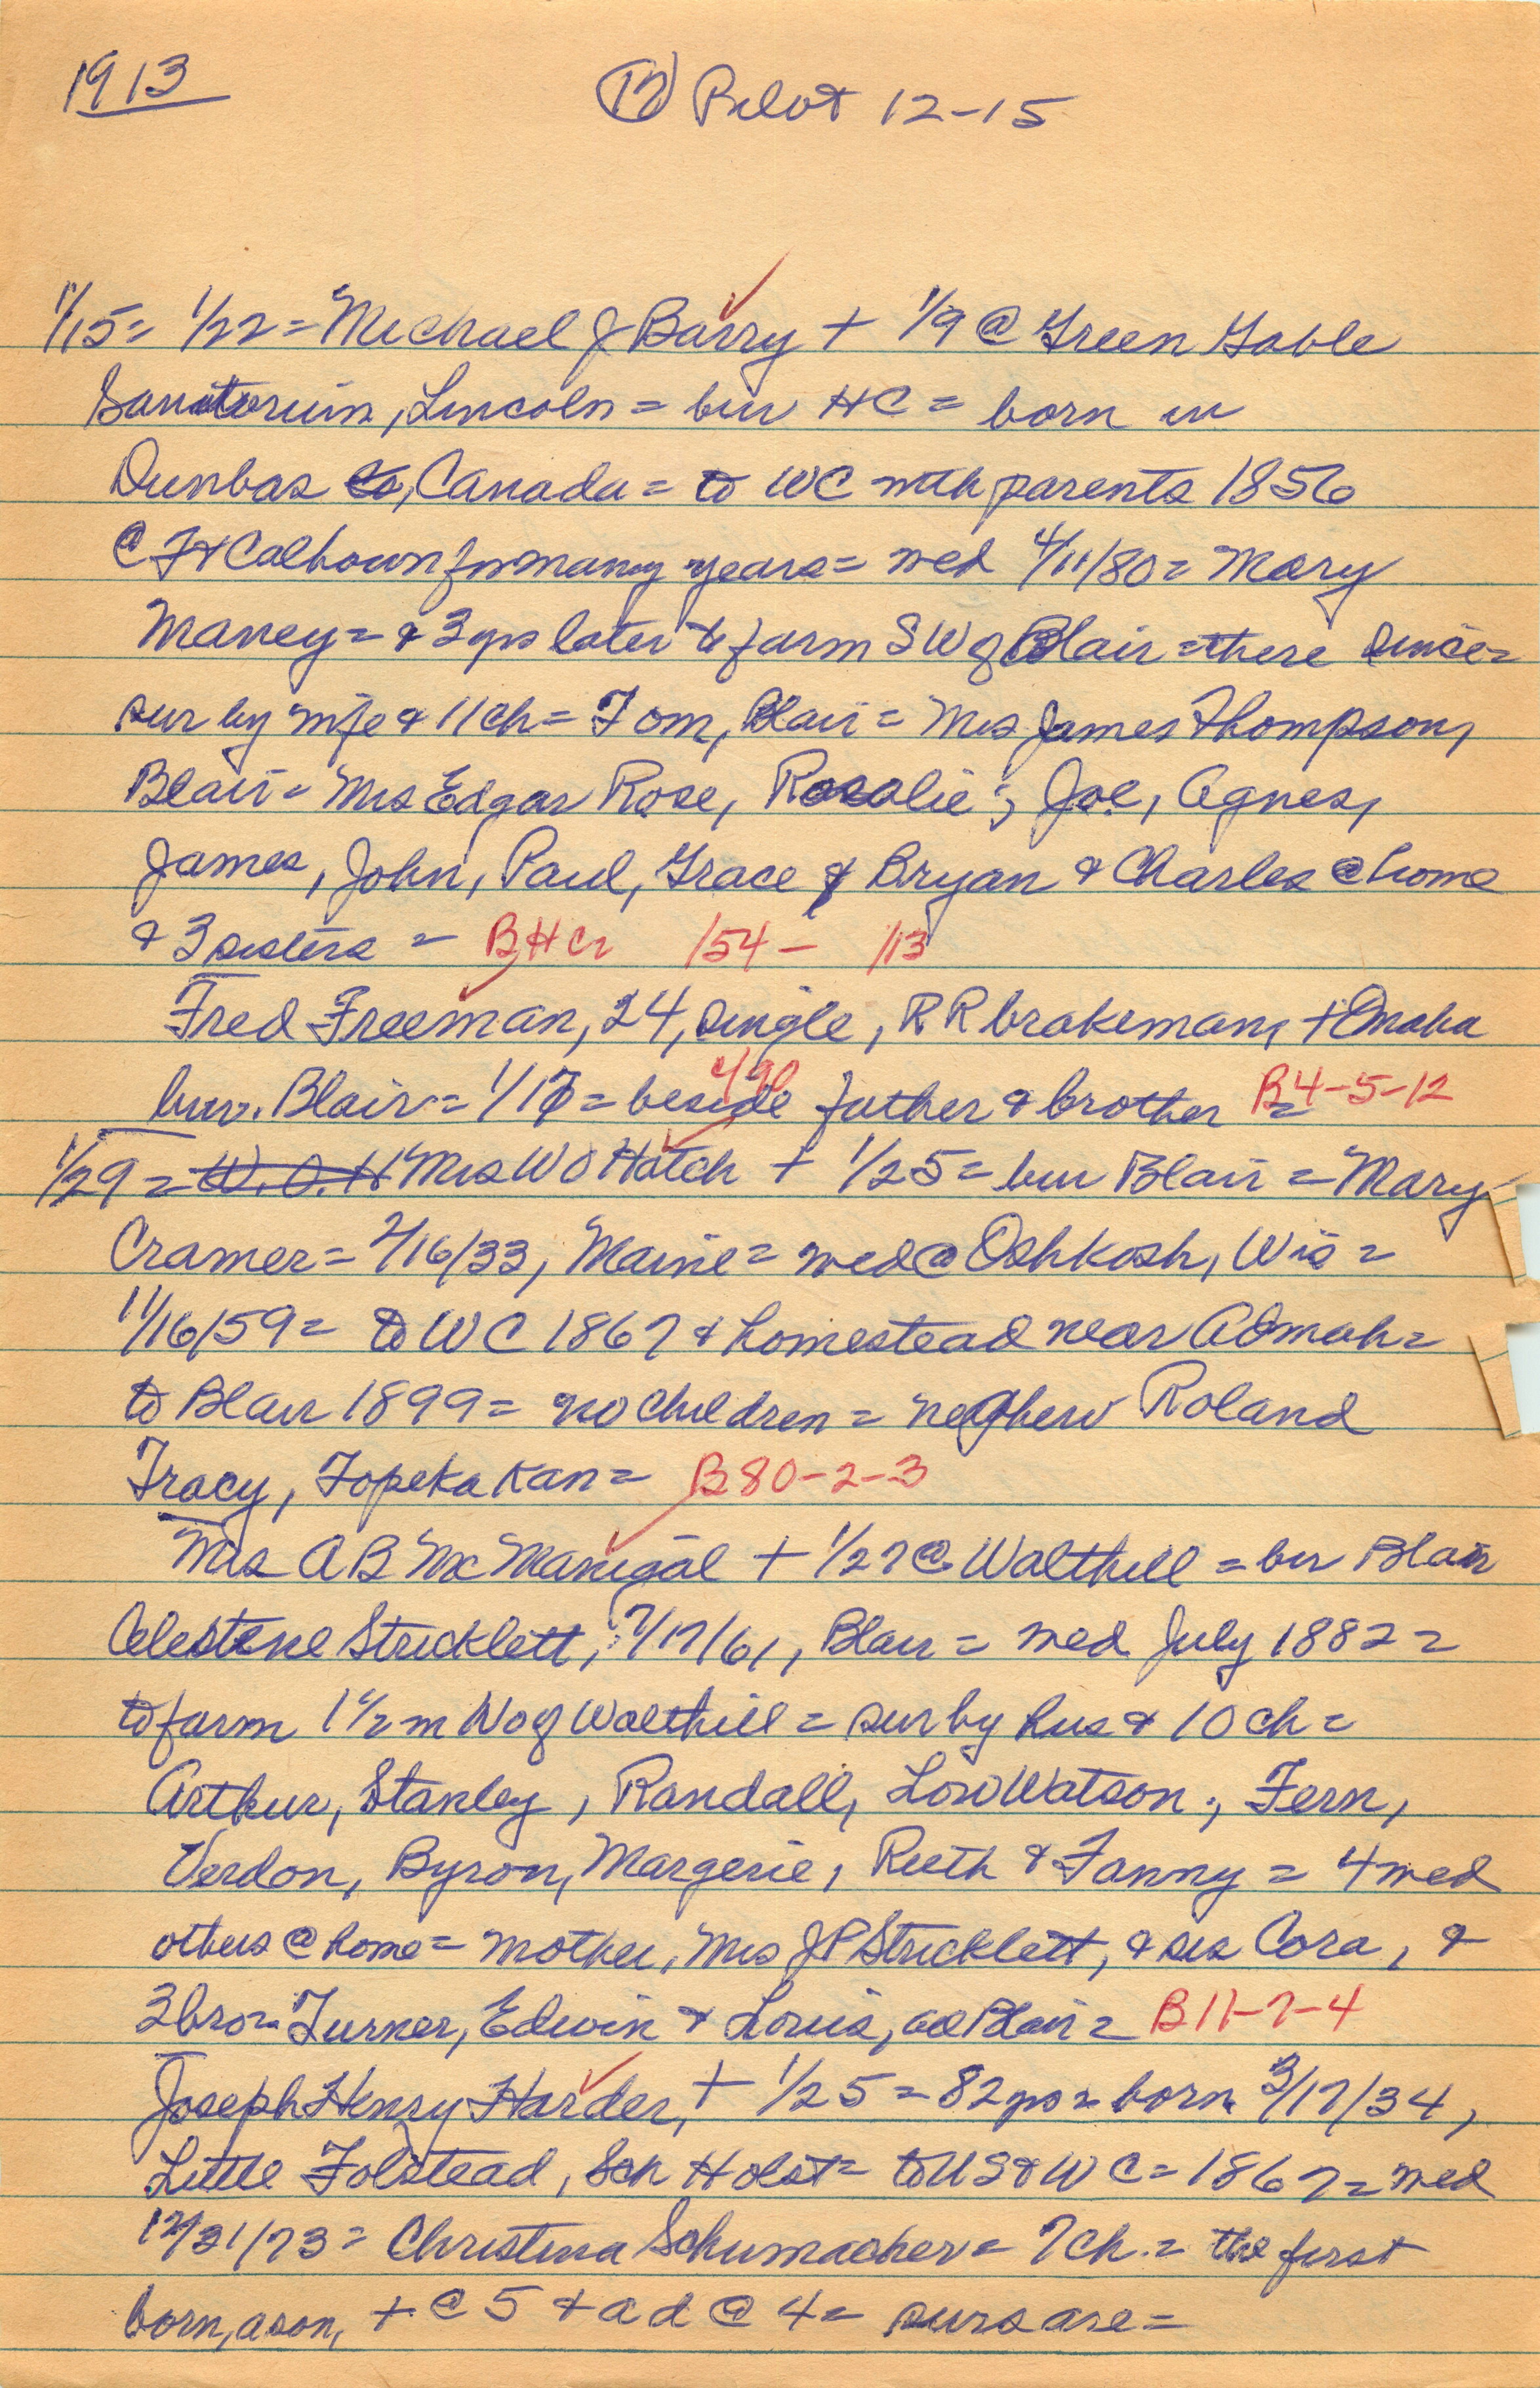 1913
(12) Pilot 12-15
1/15= 1/22= Michael J Barry + 1/9 @ Green Gable
Sanatorium, Lincoln = bur HC = born in
Dunbas Co, Canada = to WC with parents 1856
@ Ft Calhoun for many years = med 4/11/80 = Mary
Maney = & 3 yrs later to farm SW of Blair = there since =
sur by wife & 11 ch = Tom, Blair = Mrs James Thompson,
Blair = Mrs Edgar Rose, Rosalie; Joe, Agnes,
James, John, Paul, Grace & Bryan & Charles @ home
& 3 sisters = BHC 154- 113
Fred Freeman, 24, single, RR brakeman, + Omaha
bur. Blair = 1/17 = beside father & brother = B4-5-12
1/29 = W. O. H Mrs W O Hatch + 1/25 = bur Blair = Mary
Cramer = 2/16/33, Maine = med @ Oshkosh, Wis =
11/16/59 = to WC 1867 & homestead near Admah =
to Blair 1899 = no children = nephew Roland
Tracy, Topeka Kan = B80-2-3
Mrs A B McManigal + 1/27 @ Walthill = bur Blair
Celestene Stricklett, 7/17/61, Blair = med July 1882 =
to farm 1 1/2 m W of Walthill = sur by hus & 10 ch =
Arthur, Stanley, Randall, Lou Watson; Fern,
Verdon, Byron, Margerie, Ruth & Fanny = 4 med
others @ home = mother, Mrs J P Stricklett, & sis Cora, &
3 bro = Turner, Edwin & Louis, all Blair = B11-7-4
Joseph Henry Harder, + 1/25 = 82 yrs = born 3/17/34,
Little Folstead, Sch Holst = to US & WC = 1867 = med
12/31/73 = Christina Schumacher = 7 ch. = the first
born, a son, + @ 5 & a d @ 4 = surs are =